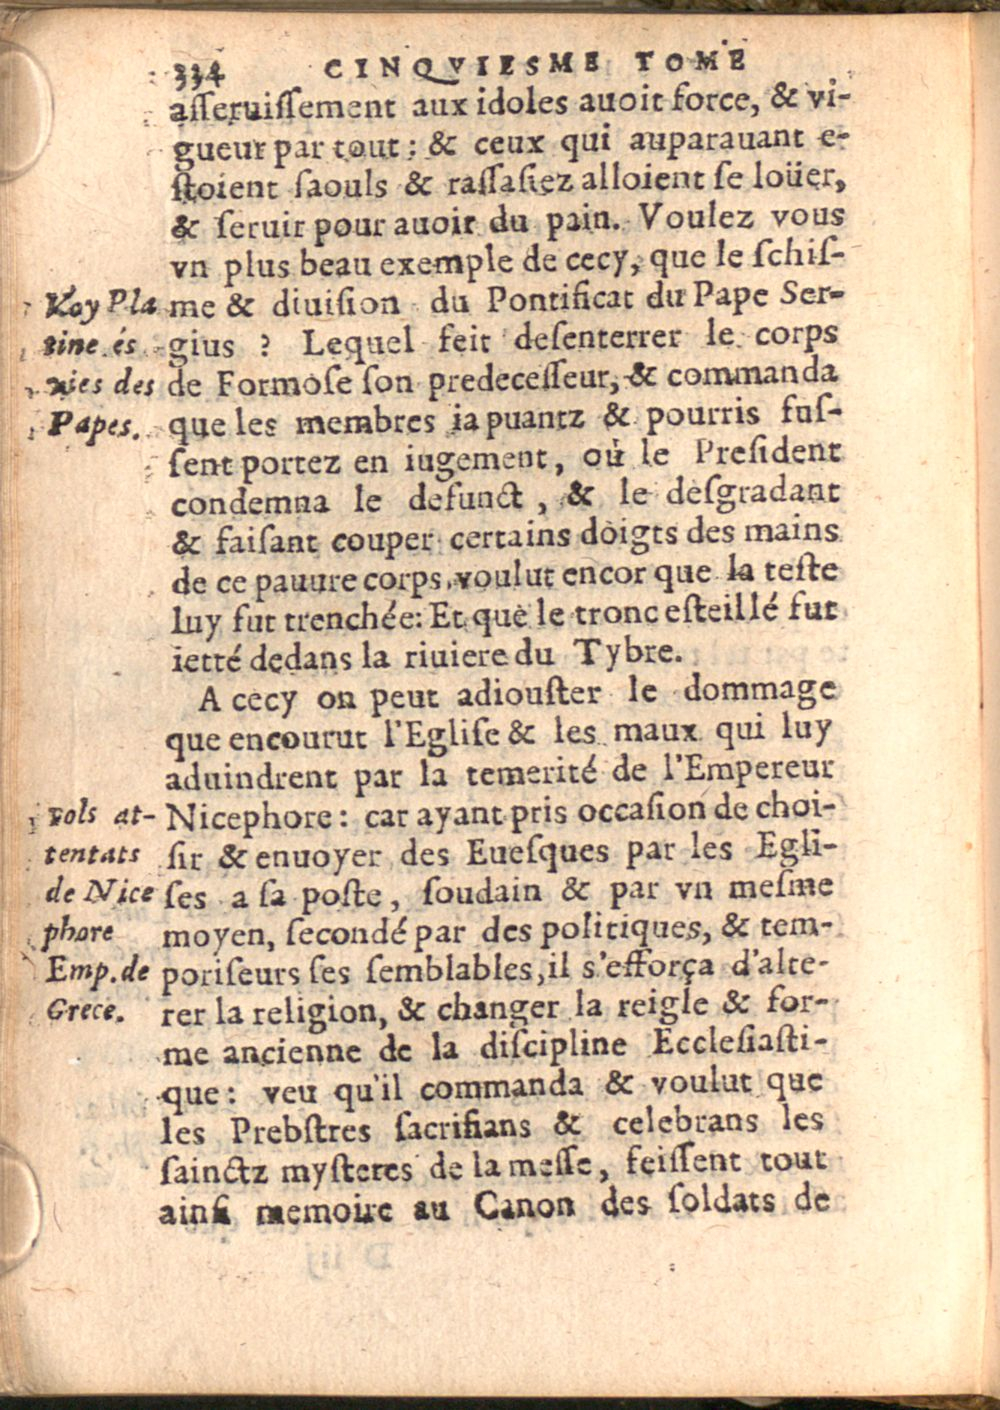 334 CINQVIESME TOME
asseruissement aux idoles auoit force, & vi-
gueur par tout : & ceux qui auparauant e-
stoient saouls & rassasiez alloient se loüer,
& seruir pour auoir du pain. Voulez vous
vn plus beau exemple de cecy, que le schis-
me & diuision du Pontificat du Pape Ser-
gius ? Lequel feit desenterrer le corps
de Formose son predecesseur, & commanda
que les membres ia puantz & pourris fus-
sent portez en iugement, où le President
condemna le defunct, & le desgradant
& faisant couper certains doigts des mains
de ce pauure corps, voulut encor que la teste
luy fut trenchée: Et que le tronc esteillé fut
ietté dedans la riuiere du Tybre.
Voy Pla
tine és
vies des
Papes.
A cecy on peut adiouster le dommage
que encourut l'Eglise & les maux qui luy
aduindrent par la temerité de l'Empereur
Nicephore : car ayant pris occasion de choi-
sir & enuoyer des Euesques par les Egli-
ses a sa poste, soudain & par vn mesme
moyen, secondé par des politiques, & tem-
poriseurs ses semblables, il s'efforça d'alte-
rer la religion, & changer la reigle & for-
me ancienne de la discipline Ecclesiasti-
que : veu qu'il commanda & voulut que
les Prebstres sacrifians & celebrans les
sainctz mysteres de la messe, feissent tout
ainsi memoire au Canon des soldats de
Fols at-
tentats
de Nice
phore
Emp. de
Grece.